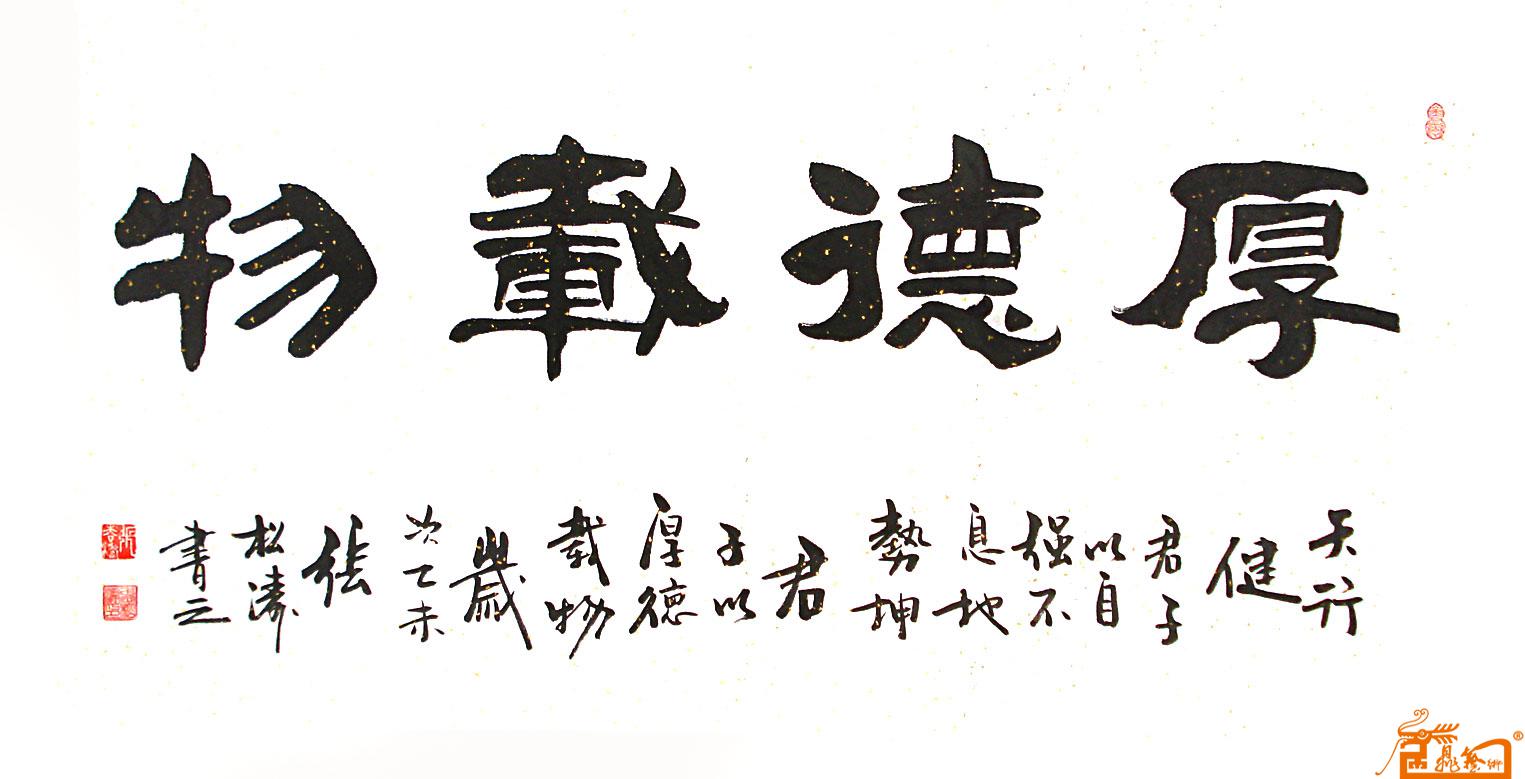 厚德載物
天行
健
君子
以自
强不
息地
勢坤
君
子以
厚德
载物
歲
次乙未
張
松濤
書之